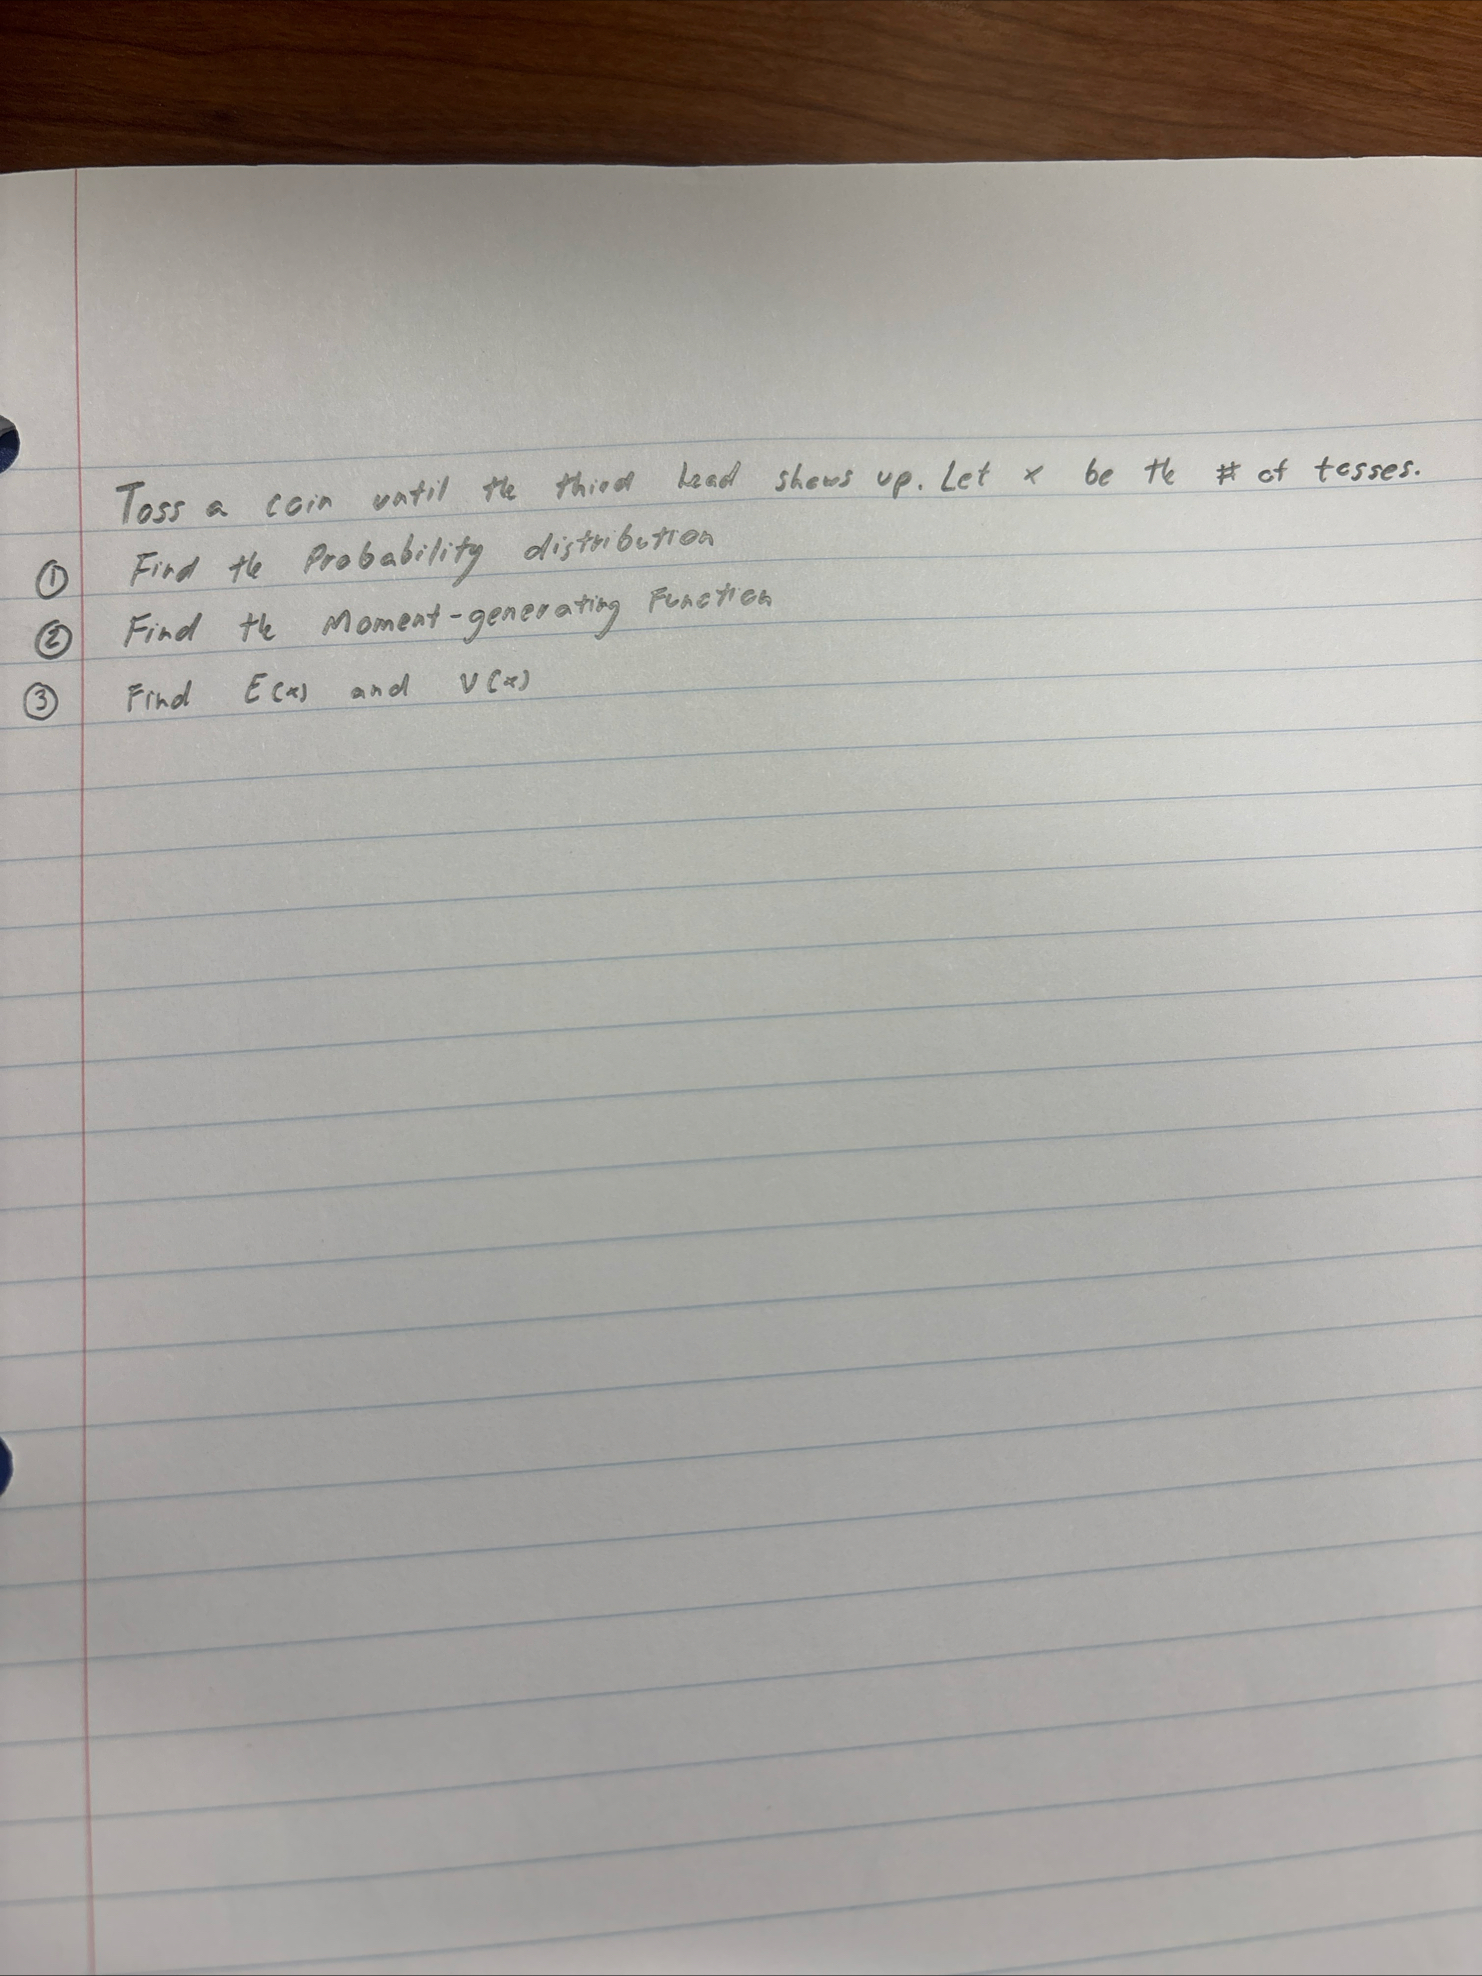 Toss a coin until the third head shows up. Let x be the # of tosses.
① Find the Probability distribution
② Find the Moment-generating Function
③ Find E(x) and V(x)